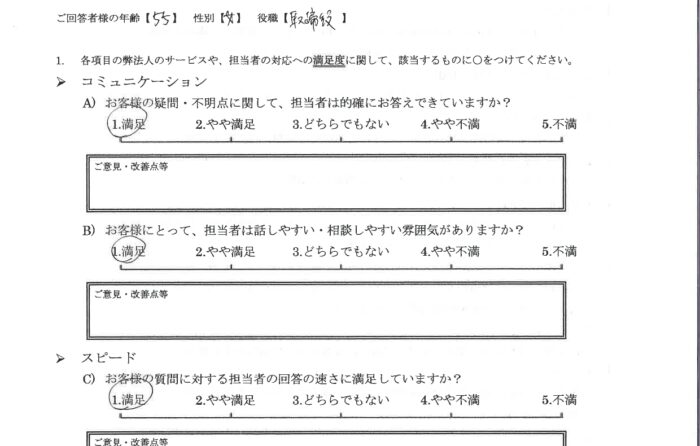 ご回答者様の年齢【55】 性別【女】 役職【取締役】
1. 各項目の弊法人のサービスや、担当者の対応への満足度に関して、該当するものに〇をつけてください。
➢ コミュニケーション
A) お客様の疑問・不明点に関して、担当者は的確にお答えできていますか？
1.満足 2.やや満足 3.どちらでもない 4.やや不満 5.不満
ご意見・改善点等
B) お客様にとって、担当者は話しやすい・相談しやすい雰囲気がありますか？
1.満足 2.やや満足 3.どちらでもない 4.やや不満 5.不満
ご意見・改善点等
➢ スピード
C) お客様の質問に対する担当者の回答の速さに満足していますか？
1.満足 2.やや満足 3.どちらでもない 4.やや不満 5.不満
ご意見・改善点等